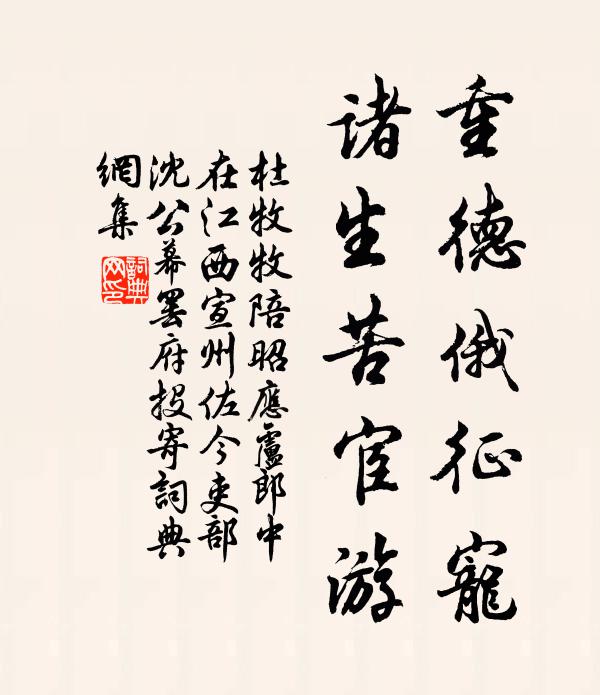 重德俄征寵
诸生苦宦游
杜牧牧陪昭應盧郎中
在江西宣州佐今吏部
沈公幕罢府投寄詞典
網集
詞典
网印